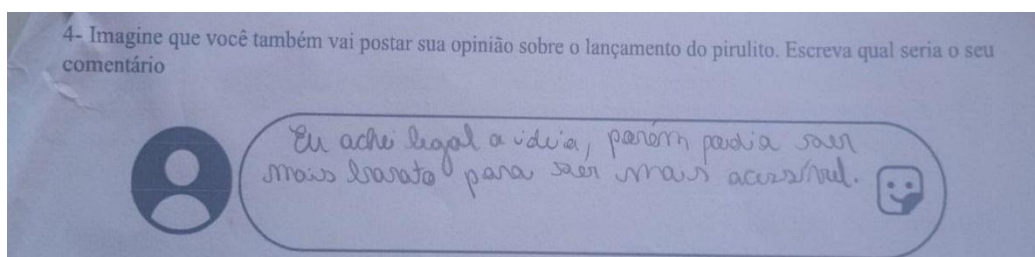 4- Imagine que você também vai postar sua opinião sobre o lançamento do pirulito. Escreva qual seria o seu
comentário
Eu achei legal a ideia, porém podia ser
mais barato para ser mais acessível.